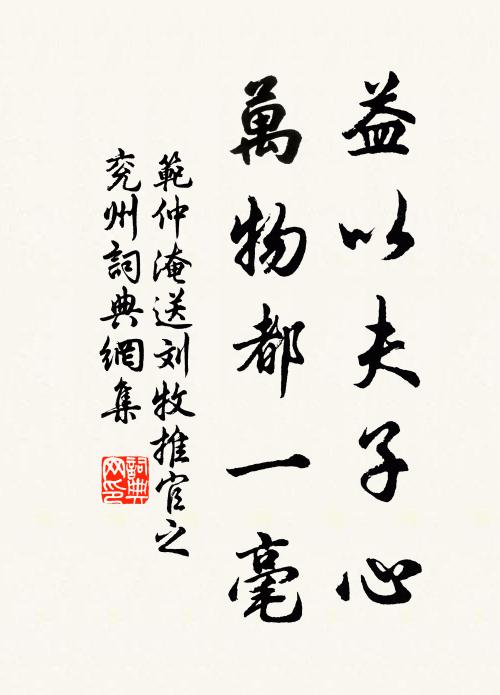 益以夫子心
萬物都一毫
範仲淹送刘牧推官之
兖州詞典網集
詞典网印